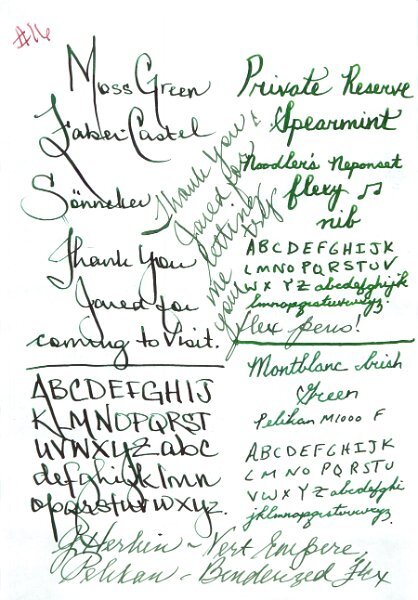 #16
Moss Green
Faber-Castel
Sönneker
Thank You
Jared for
coming to Visit.
ABCDEFGHIJ
KLMNOPQRST
UVWXYZ abc
defghijklmn
opqrstuvwxyz.
Thank You
Jared for
letting
me try
your
flex pens!
Private Reserve
Spearmint
Noodler's Neponset
flexy
nib
ABCDEFGHIJK
LMNOPQRSTUV
WXYZ abcdefghijk
lmnopqrstuvwxyz.
Montblanc Irish
Green
Pelikan M1000 F
ABCDEFGHIJK
LMNOPQRSTU
VWXYZ abcdefghi
jklmnopqrstuvwxyz.
J. Herbin ~ Vert Empire,
Pelikan ~ Binderized Flex